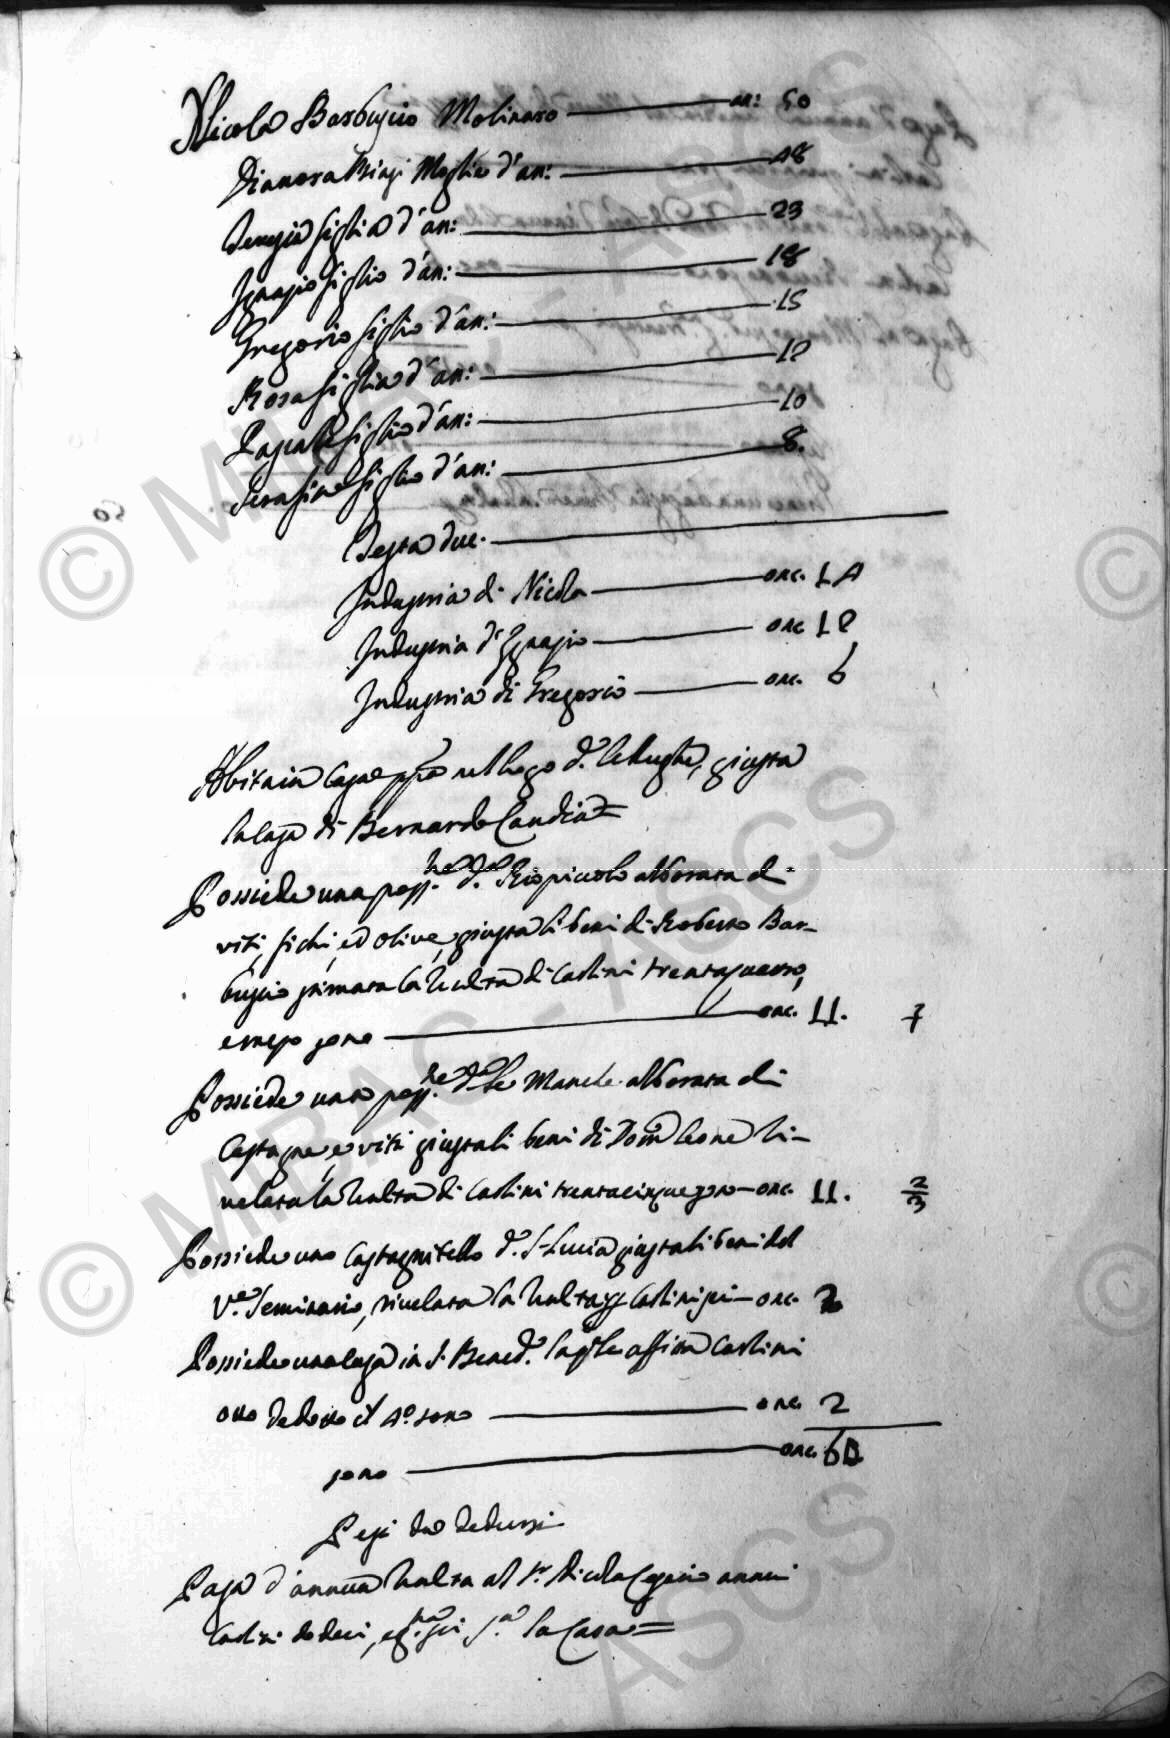 Nicola Barbuscio Molinaro — an: 50
Dianora Biasi Moglie d'an: — 48
Teresia figlia d'an: — 23
Ignazio figlio d'an: — 18
Gregorio figlio d'an: — 15
Rosa figlia d'an: — 12
Pascale figlio d'an: — 10
Serafino figlio d'an: — 8.
50
Testa duc. —
Industria di Nicola — onc. 14
Industria d'Ignazio — onc 12
Industria di Gregorio — onc. 6
Abita in Casa ppa nel luogo d.o giusta
la casa di Bernardo Candia =
Possiede una poss.ne d.a Rio piccolo alborata di
viti, fichi, ed olive, giusta li beni di Roberto Bar-
buscio stimata la rendita di Carlini trentaquattro,
e mezo sono — onc. 11. 7
Possiede una poss.ne d.a le Manche alborata di
Castagne, e viti giusta li beni di Dom.co Leone ri-
velata la rendita di Carlini trentacinque sono — onc. 11. 2/3
Possiede uno Castagnitello d.o S. Lucia giusta li beni del
V.e Seminario, rivelata la rendita p Carlini sei — onc. 2
Possiede una casa in S. Bened.o la q.le affitta Carlini
otto dedotto il 4.o sono — onc 2
sono — onc. 60
Pesi da dedursi
Paga d'annua rendita al S.r Nicola annui
Carlini dodeci, S.a la Casa =